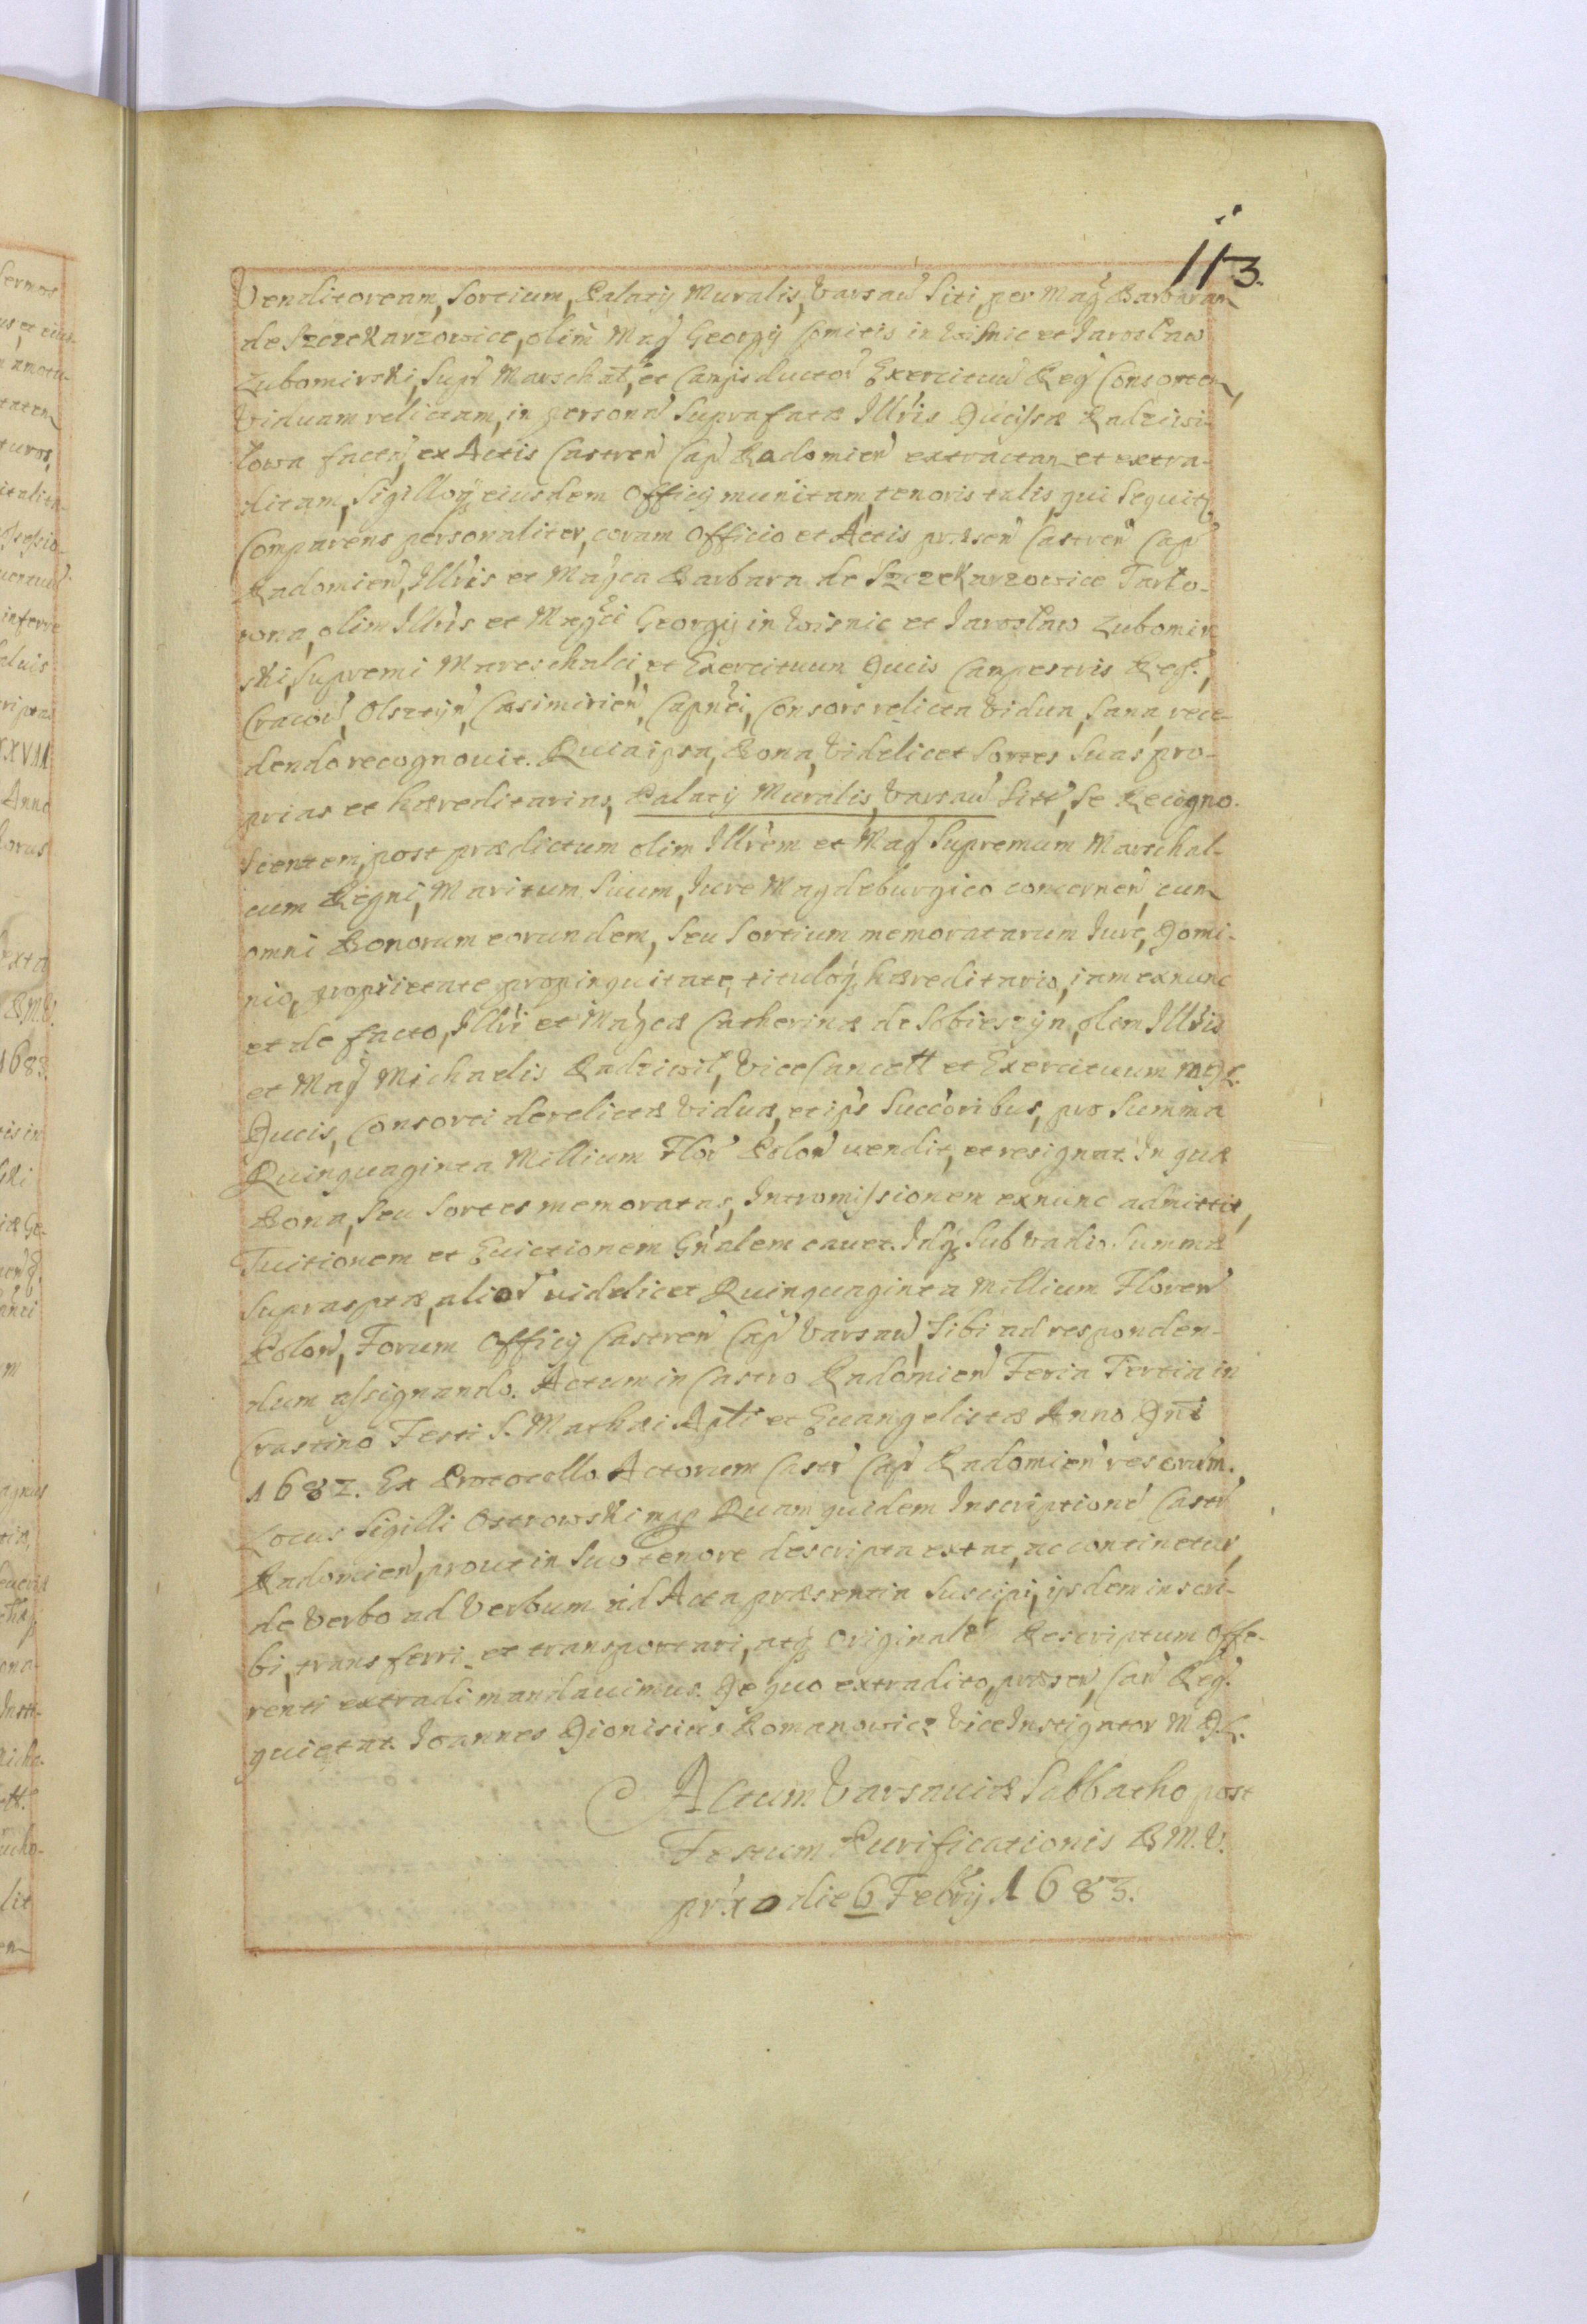 113.
Venditoream, Sortium, Palatij Muralis, Varsaw Siti, per Mag Barbaram
de Szczekarzowice, olim Mag Georgij Comitis in Wisnic et Iaroslaw
Lubomirski, Supr Marschal, et Campiductor Exercituu Reg Consortem,
Viduam relictam, in personam Suprafatæ Illris Ducissæ Radziwi-
lowa factam, ex Actis Castren Cap Radomien extractam et extra-
ditam, Sigilloq eiusdem Officij munitam, tenoris talis, qui Sequitur
Comparens personaliter, coram Officio et Actis præsen Castren Cap
Radomien, Illris et Magca Barbara de Szczekarzowice Tarło-
wna, olim Illris et Magci Georgij in Wisnic et Iarosław Lubomir
ski, Supremi Mareschalci, et Exercituum Ducis Campestris Reg.,
Cracov, Olsztyn, Casimirien, Capnei, Consors relicta Vidua, Sana, rece-
dendo recognouit. Quia ipsa, Bona, Videlicet Sortes Suas pro-
prias et hæreditarias, Palatij Muralis, Varsaw Siti, Se Recogno-
scentem, post prædictum olim Illrem et Mag Supremum Marschal-
cum Regni, Maritum Suum, Iure Magdeburgico concernen, cum
omni Bonorum eorundem, Seu Sortium memoratarum Iure, Domi-
nio, proprietate propinquitate, tituloq hæreditario, iam exnunc
et de facto, Illri et Magcæ Catherinæ de Sobieszyn, olim Illris
et Mag Michaelis Radziwił, Vice Cancell et Exercituum MDL.
Ducis, Consorti derelictæ Viduæ, et ips Succoribus, pro Summa
Quinquaginta Millium Flor Polon uendit, et resignat. In quæ
Bona, Seu Sortes memoratas, Intromissionem exnunc admittit,
Tuitionem et Euictionem Gnalem cauet. Idq Sub vadio Summæ
Suprasptæ, alior uidelicet Quinquaginta Millium Floren
Polon, Forum Officij Castren Cap Varsaw, Sibi ad responden-
dum assignando. Actum in Castro Radomien Feria Tertia in
Crastino Festi S. Mathæi Apli et Euangelistæ Anno Dni
1682. Ex Protocollo Actorum Castr Cap Radomien rescrim.
Locus Sigilli Ostrowski mpp Quam quidem Inscriptione Castr
Radomien, prout in Suo tenore descripta extat, ac continetur,
de Verbo ad Verbum ad Acta præsentia Suscipi, ijsdem inscri-
bi, transferri et transportari, atq Originale Rescriptum offe-
renti extradi mandauimus. De quo extradito, præsen, Can Reg.
quietat. Ioannes Dionisius Romanowicz Vice Instigator MDL.
Actum Varsauiæ Sabbatho post
Festum Purificationis B.M.V.
prxo die 6 Febrij 1683.